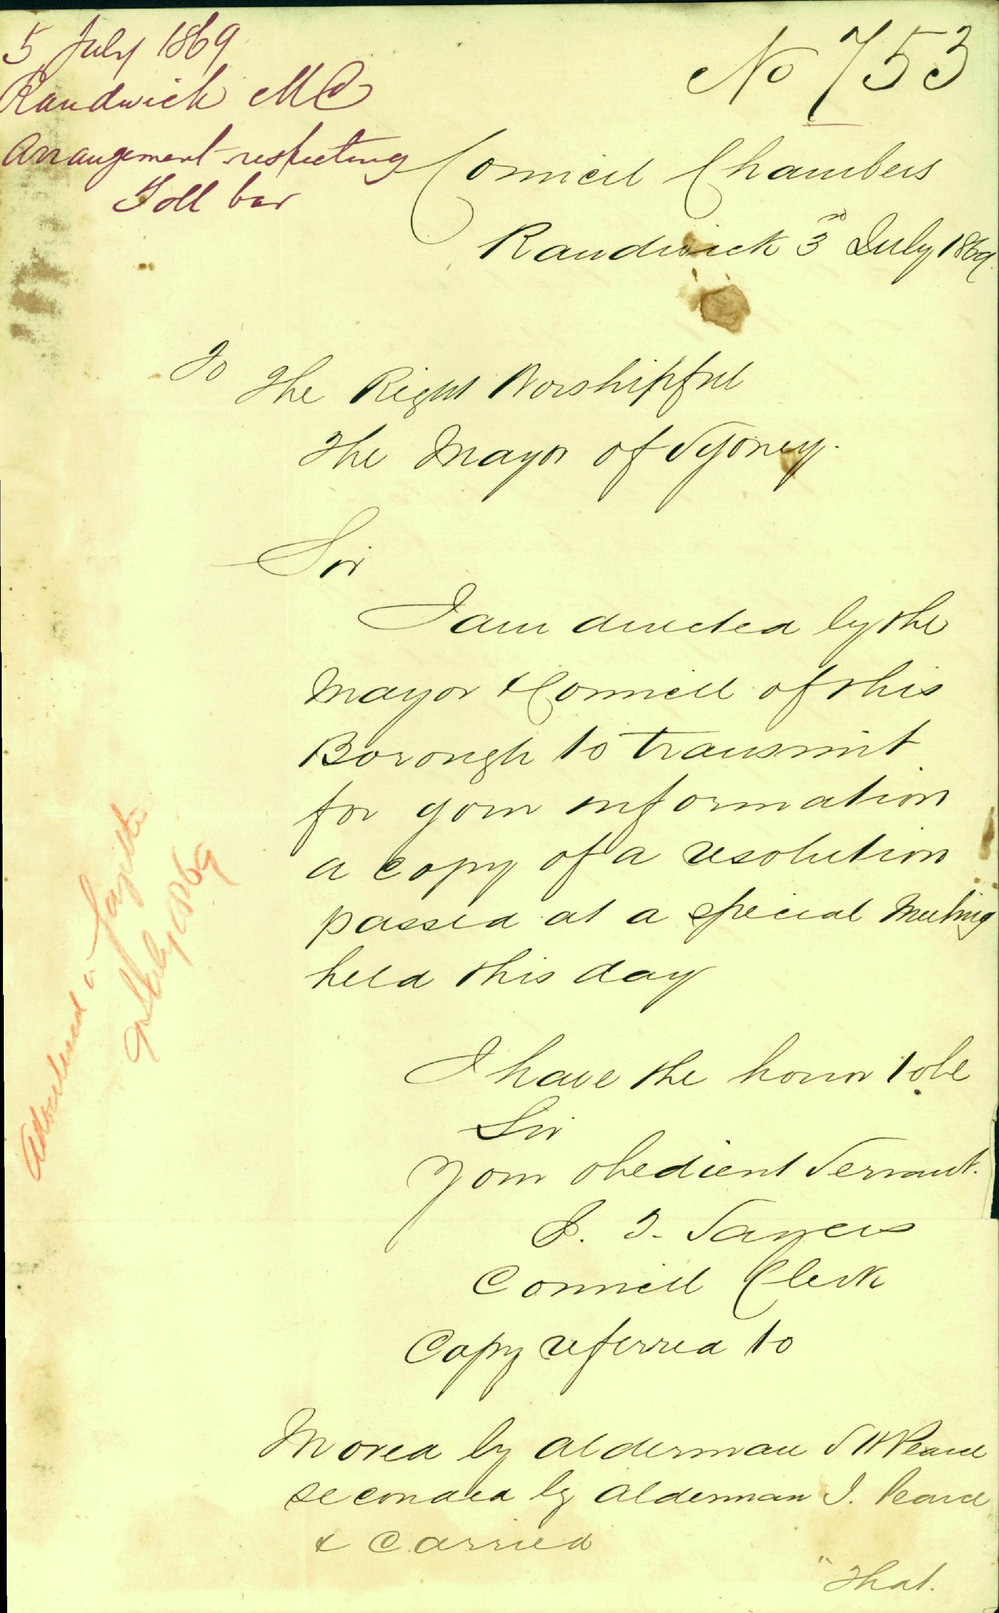 5 July 1869
Randwick MC
Arrangement respecting
Toll bar
No 753
Council Chambers
Randwick 3rd July 1869.
To
The Right Worshipful
The Mayor of Sydney.
Sir
I am directed by the
Mayor & Council of this
Borough to transmit
for your information
a copy of a resolution
passed at a special Meeting
held this day
I have the honor to be
Sir
Your obedient Servant.
Council Clerk
Copy referred to
Moved by Alderman S H Pearce
seconded by Alderman J. Pearce
& Carried
"That.
July 1869